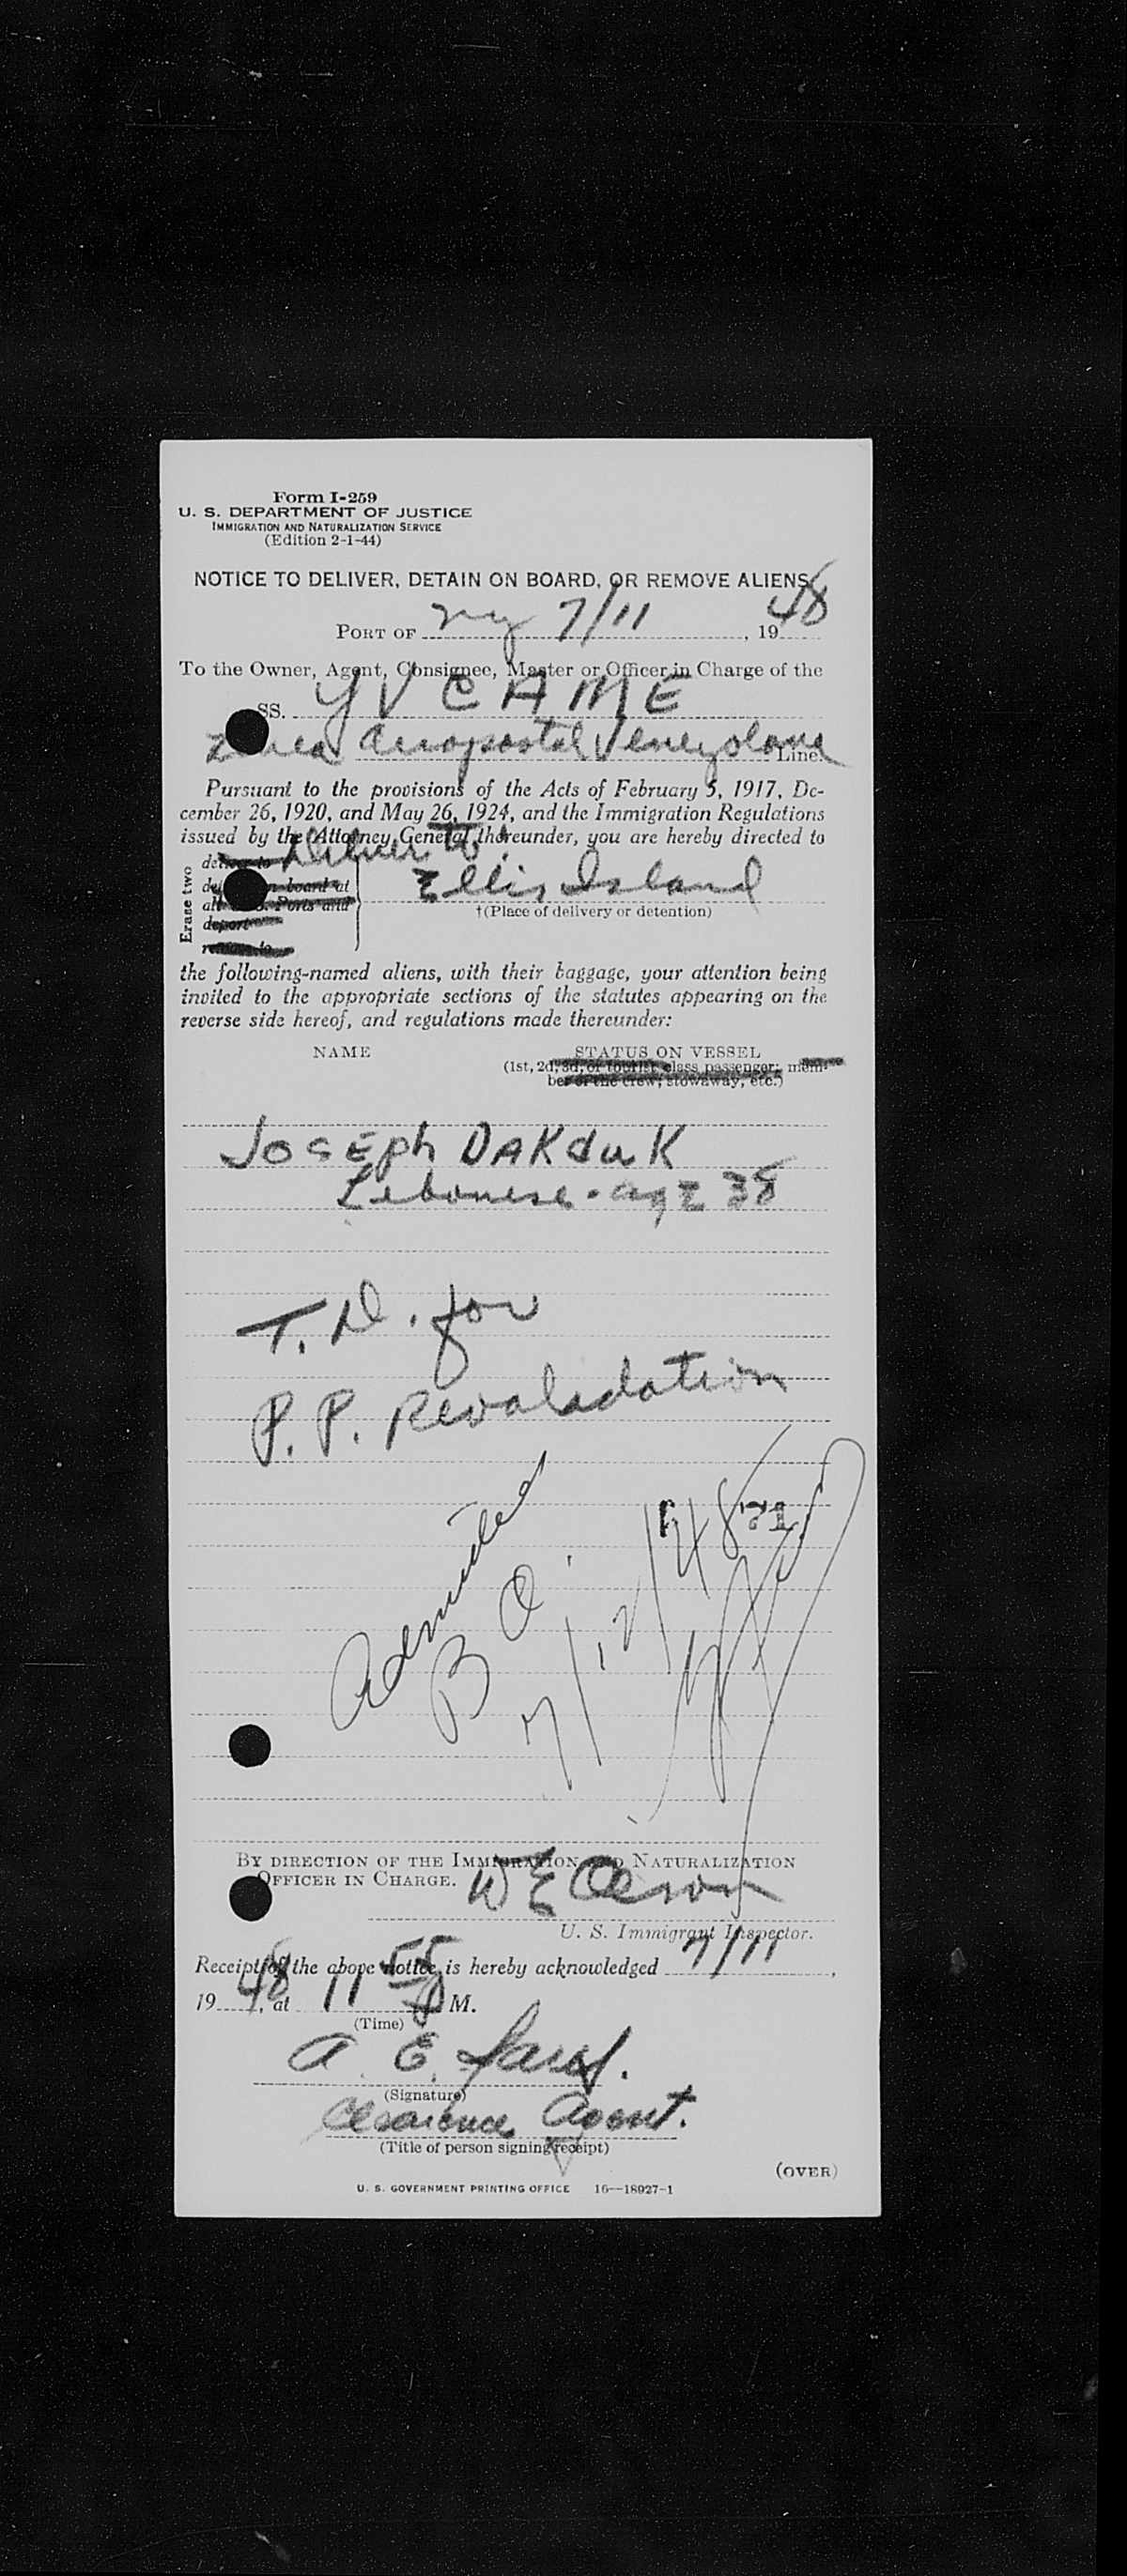 Form I-259
U. S. DEPARTMENT OF JUSTICE
IMMIGRATION AND NATURALIZATION SERVICE
(Edition 2-1-44)
NOTICE TO DELIVER, DETAIN ON BOARD, OR REMOVE ALIENS
PORT OF NY 7/11, 1948
To the Owner, Agent, Consignee, Master or Officer in Charge of the
SS. YV C AME
Linea Aeropostal Venezolana Line.
Pursuant to the provisions of the Acts of February 5, 1917, De-
cember 26, 1920, and May 26, 1924, and the Immigration Regulations
issued by the Attorney General thereunder, you are hereby directed to
Erase two
deliver to Deliver to
board at Ellis Island
Ports and †(Place of delivery or detention)
deport
the following-named aliens, with their baggage, your attention being
invited to the appropriate sections of the statutes appearing on the
reverse side hereof, and regulations made thereunder:
NAME STATUS ON VESSEL
(1st, 2d, 3d, or tourist class passenger; mem-
ber of the crew; stowaway, etc.)
JOSEPH DAKduK
Lebonese - age 38
T. D. for
P. P. Revaladation
Admitted
B
7/12/48
71
BY DIRECTION OF THE IMMIGRATION AND NATURALIZATION
OFFICER IN CHARGE. W E Olson
U. S. Immigrant Inspector.
Receipt of the above notice is hereby acknowledged 7/11,
1948, at 11 55 M.
(Time)
A. E.
(Signature)
Clearance Agent.
(Title of person signing receipt)
(OVER)
U. S. GOVERNMENT PRINTING OFFICE 16—18927-1